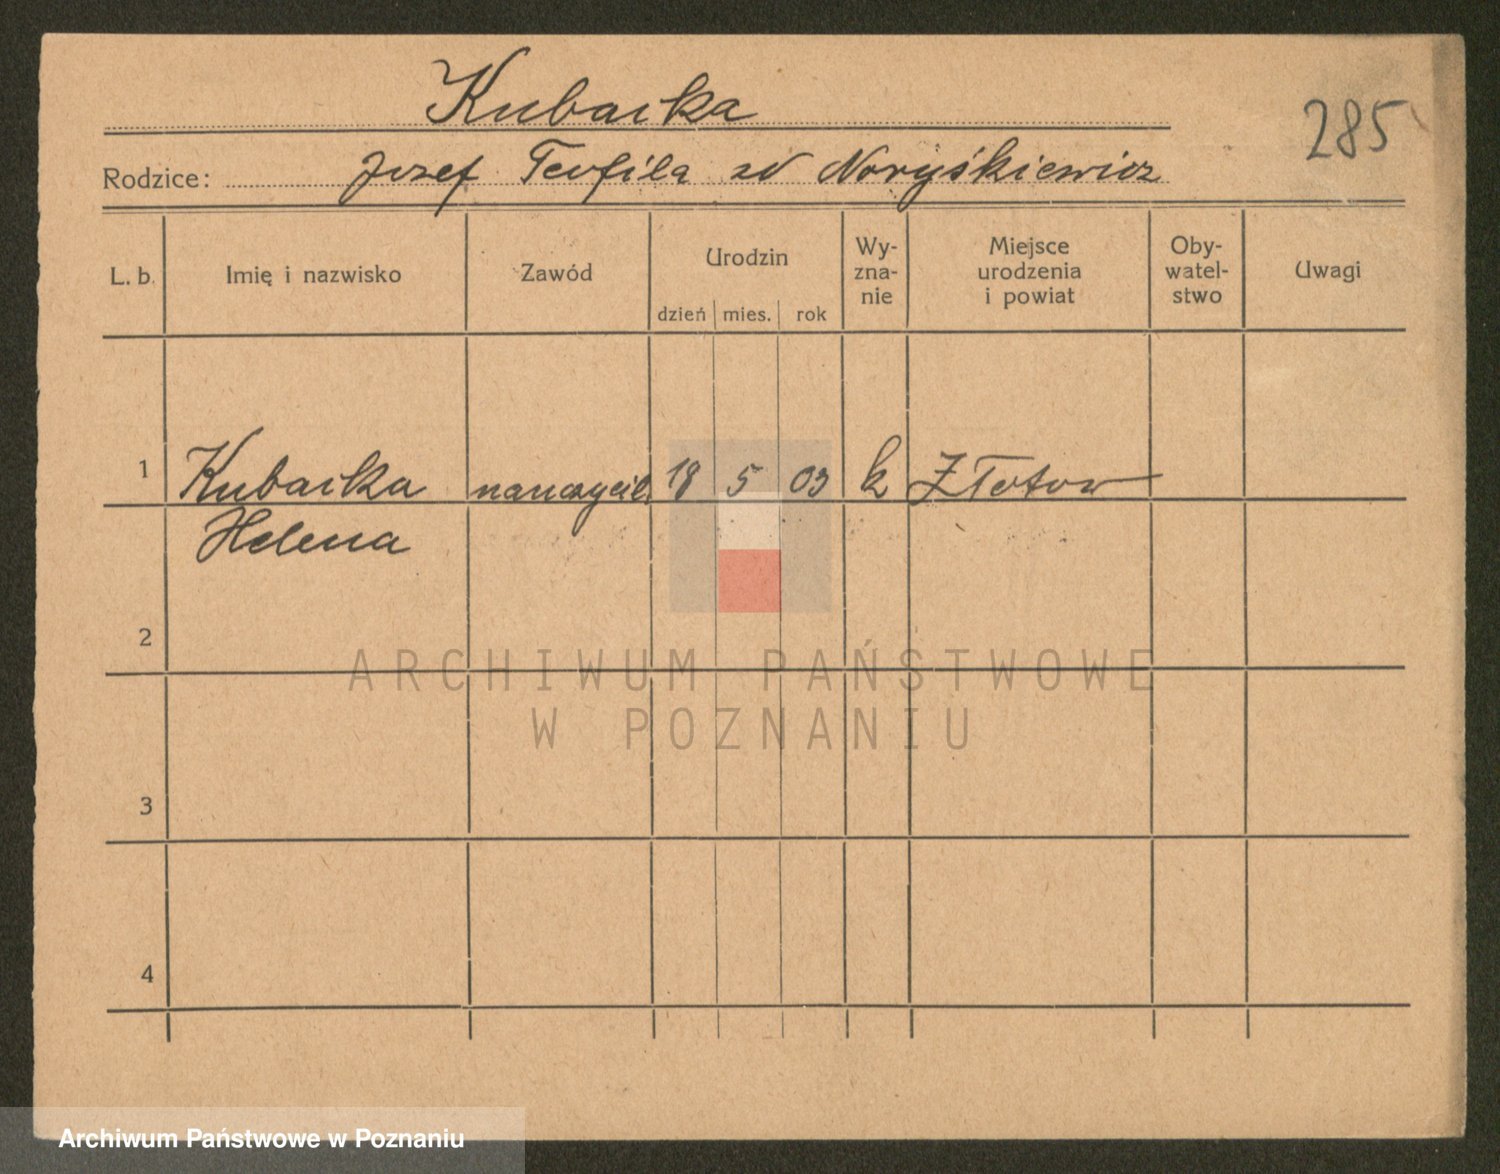 Kubacka
285
Rodzice: Jozef Teofila zd Noryśkiewicz
L. b. Imię i nazwisko Zawód Urodzin dzień mies. rok Wy-zna-nie Miejsce urodzenia i powiat Oby-watel-stwo Uwagi
1 Kubacka nauczyciel. 18 5 03 k Złotow
Helena
2
ARCHIWUM PAŃSTWOWE
W POZNANIU
3
4
Archiwum Państwowe w Poznaniu